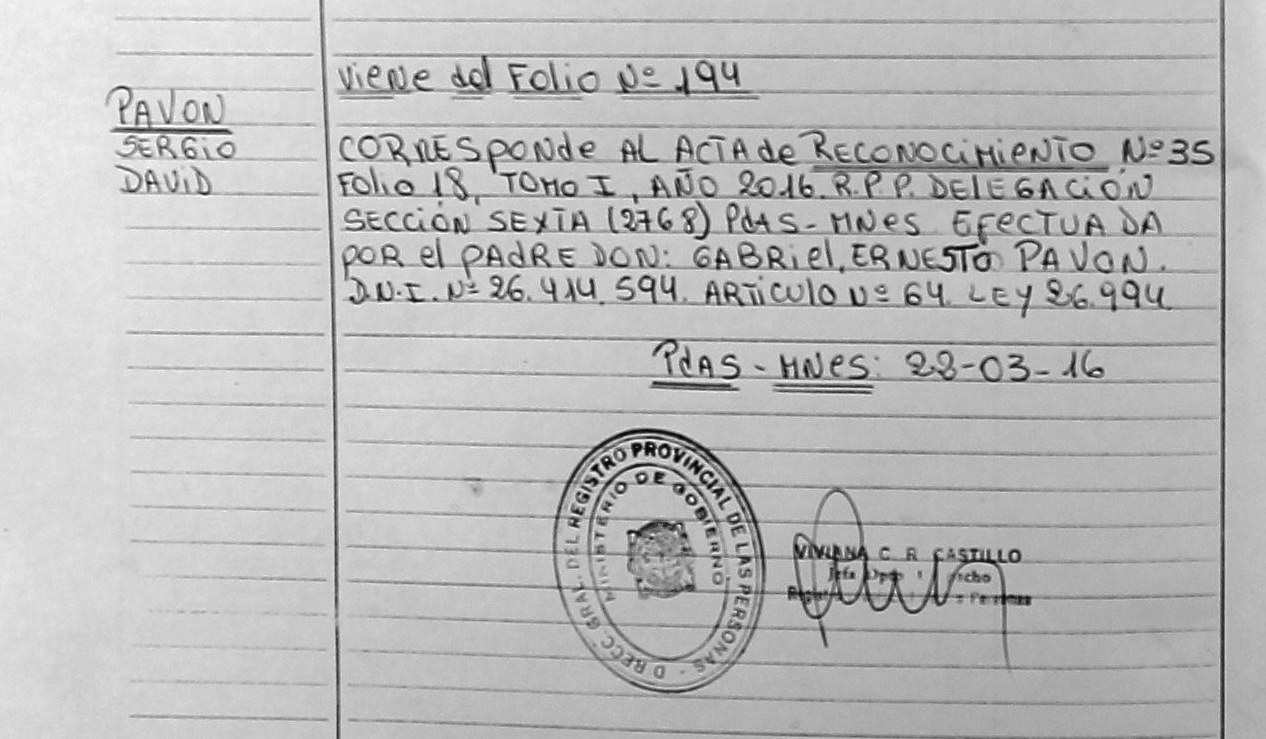 Viene del Folio Nº 194
PAVON
SERGiO
DAViD
CORRESponde AL ACTA de RECONOCiMieNTO Nº 35
Folio 18, TOMO I, AÑO 2016. R.P.P. DELEGACIÓN
SECCIÓN SEXTA (2768) PdAS-MNes EFECTUADA
POR el PAdRE DON: GABRiel, ERNESTO PAVON.
D.N.I. Nº 26.414.594. ARTiCulO Nº 64. LEY 26.994
PdAS - MNes: 22-03-16
GRAL. DEL REGISTRO PROVINCIAL DE LAS PERSONAS -
MINISTERIO DE GOBIERNO
VIVIANA C. R. CASTILLO